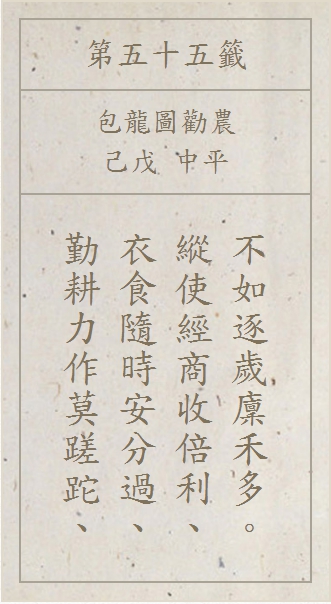 第五十五籤
包龍圖勸農
己戊 中平
勤耕力作莫蹉跎、
衣食隨時安分過、
縱使經商收倍利、
不如逐歲廩禾多。